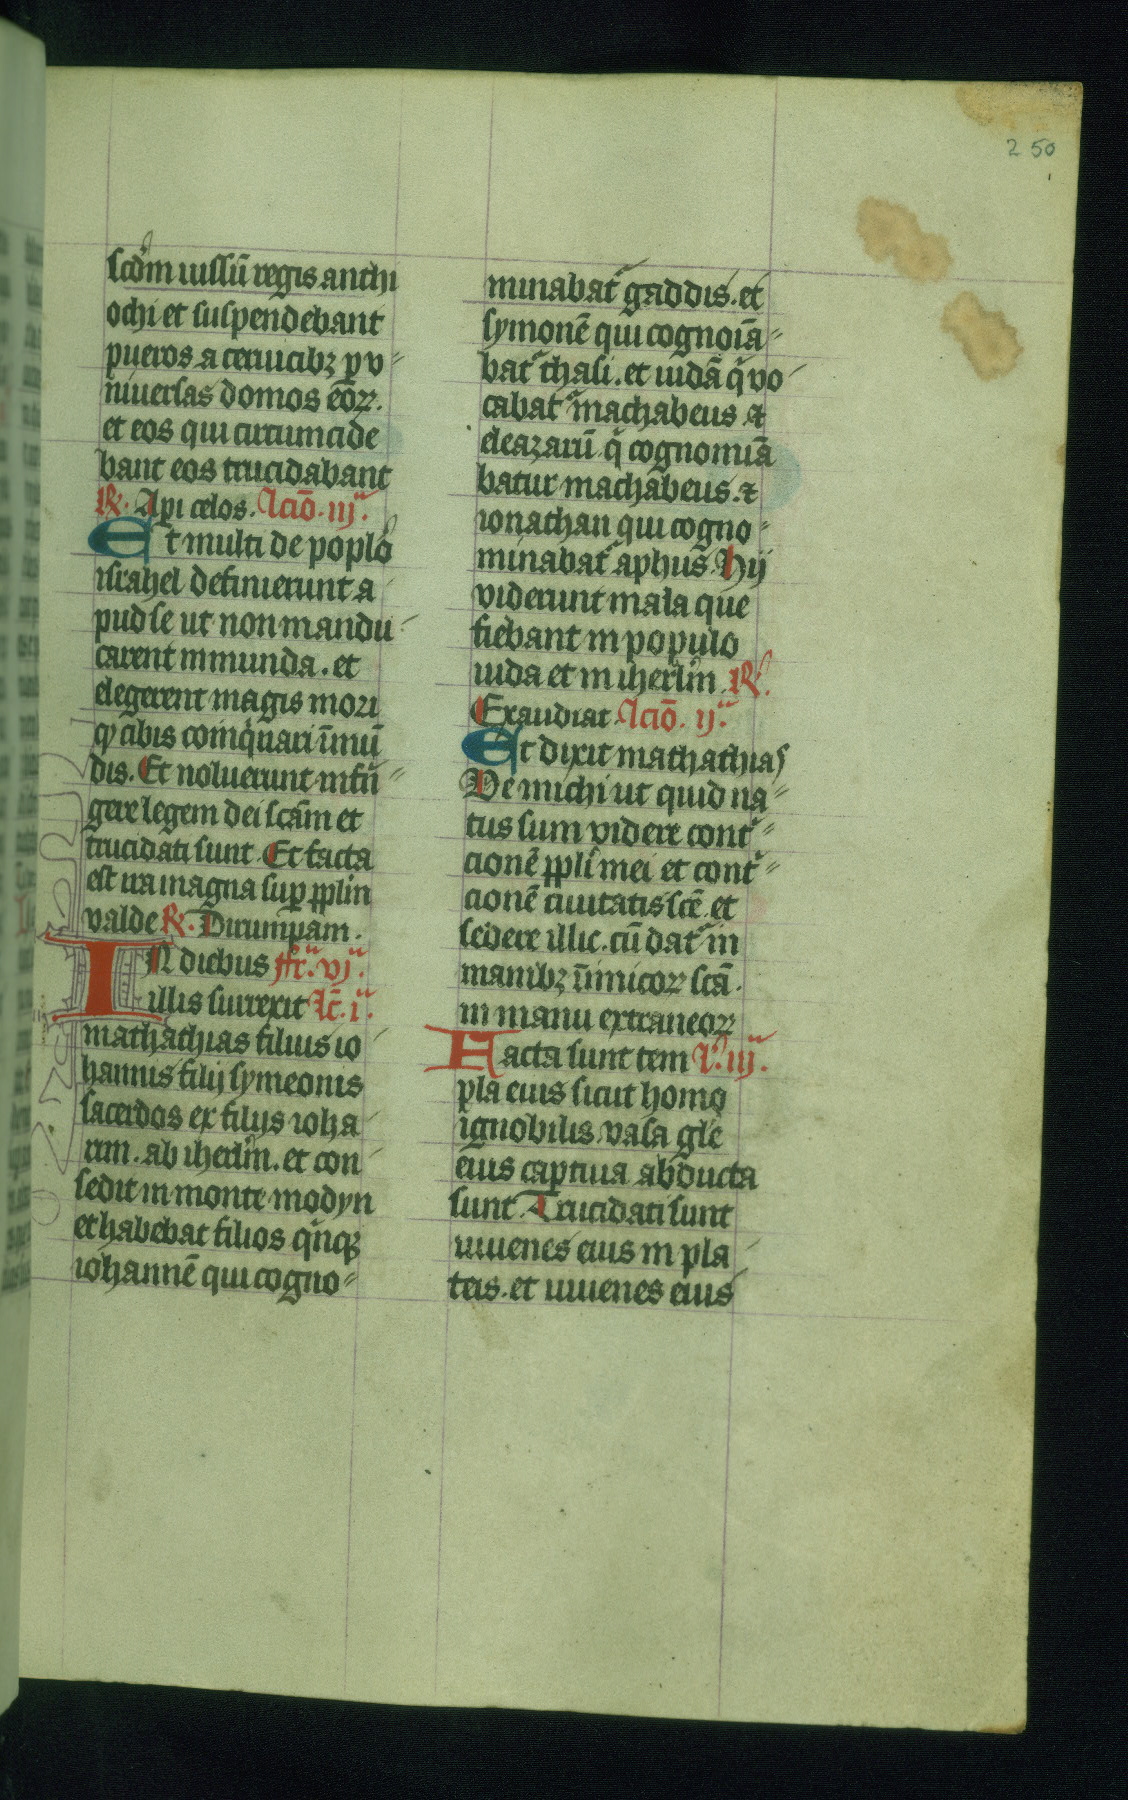 250
scdm iussū regis anthi
ochi et suspendebant
pueros a ceruicibꝫ ꝑ v
niuersas domos eoꝝ.
et eos qui circumcide
bant eos trucidabant
℞. Api celos. Lcīo. iij.ª
Et multi de poplo
israhel definierunt a
pud se ut non mandu
carent inmunda. et
elegerent magis mori
qͥ cibis coinqͥnari īmū
dis. Et noluerunt infrī
gere legem dei scām et
trucidati sunt. Et facta
est ira magna suꝑ pplm
valde ℞. Dirumpam.
IN diebus ffr.ª vj.ª
illis surrexit Lc̄. i.ª
mathathias filius io
hannis filij symeonis
sacerdos ex filijs ioha
rim. ab iherlm̄. et con
sedit in monte modyn
et habebat filios qͥnqꝫ
iohannē qui cogno
minabatᷣ gaddis. et
symonē qui cognoīa
batᷣ thasi. et iudā qͥ vo
cabatᷣ machabeus. ⁊
eleazarū. qͥ cognomīa
batur machabeus. ⁊
ionathan qui cogno
minabatᷣ aphus. Hij
viderunt mala que
fiebant in populo
iuda et in iherlm̄. ℞.
Exaudiat. Lcīo. ij.ª
Et dixit mathathias
Ve michi ut quid na
tus sum videre contͥ
cionē ppli mei et contͥ
cionē ciuitatis scē. et
sedere illic. cū datᷣ in
manibꝫ īimicoꝝ scā.
in manu extraneoꝝ
Facta sunt tem L. iij.ª
pla eius sicut homo
ignobilis. vasa glē
eius captiua abducta
sunt. Trucidati sunt
iuuenes eius in pla
teis. et iuuenes eius